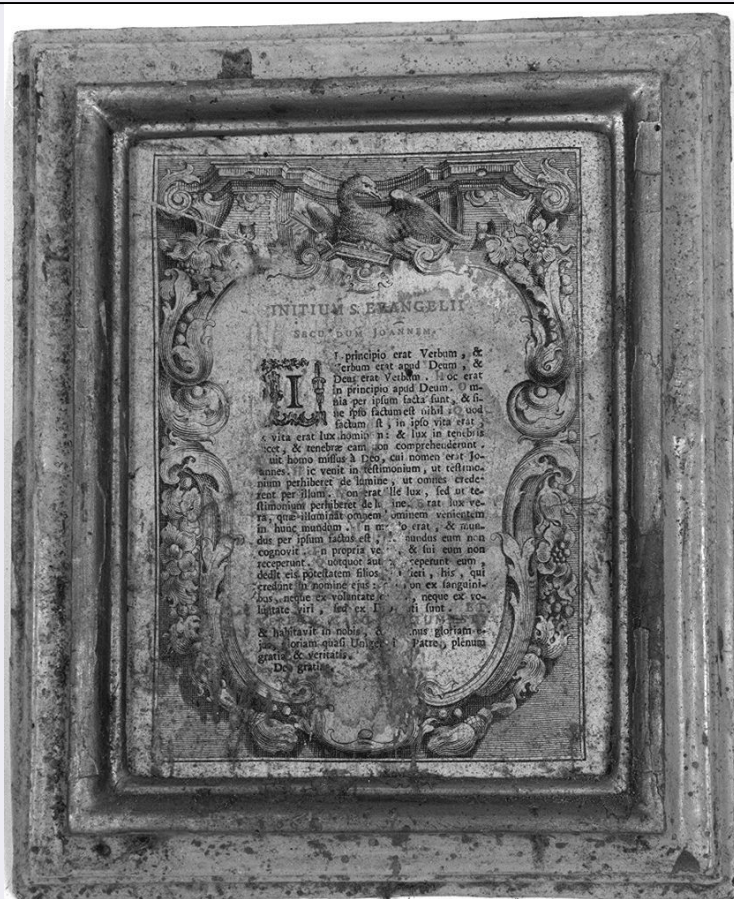 INITIUM S. EVANGELII
SECUNDUM JOANNEM.
IN principio erat Verbum, &
Verbum erat apud Deum, &
Deus erat Verbum. Hoc erat
in principio apud Deum. Om-
nia per ipsum facta sunt, & si-
ne ipso factum est nihil: Quod
factum est, in ipso vita erat,
& vita erat lux hominum: & lux in tenebris
lucet, & tenebræ eam non comprehenderunt.
Fuit homo missus à Deo, cui nomen erat Jo-
annes. Hic venit in testimonium, ut testimo-
nium perhiberet de lumine, ut omnes crede-
rent per illum. Non erat ille lux, sed ut te-
stimonium perhiberet de lumine. Erat lux ve-
ra, quæ illuminat omnem hominem venientem
in hunc mundom. In mundo erat, & mun-
dus per ipsum factus est, mundus eum non
cognovit. In propria ve & sui eum non
receperunt. Quotquot aut receperunt eum,
dedit eis potestatem filios fieri, his, qui
credunt in nomine ejus: non ex sanguini-
bus, neque ex voluntate , neque ex vo-
luntate viri, sed ex nati sunt. ET
& habitavit in nobis, & gloriam e-
jus, gloriam quasi Patre, plenum
gratiæ & veritatis.
Deo gratias.